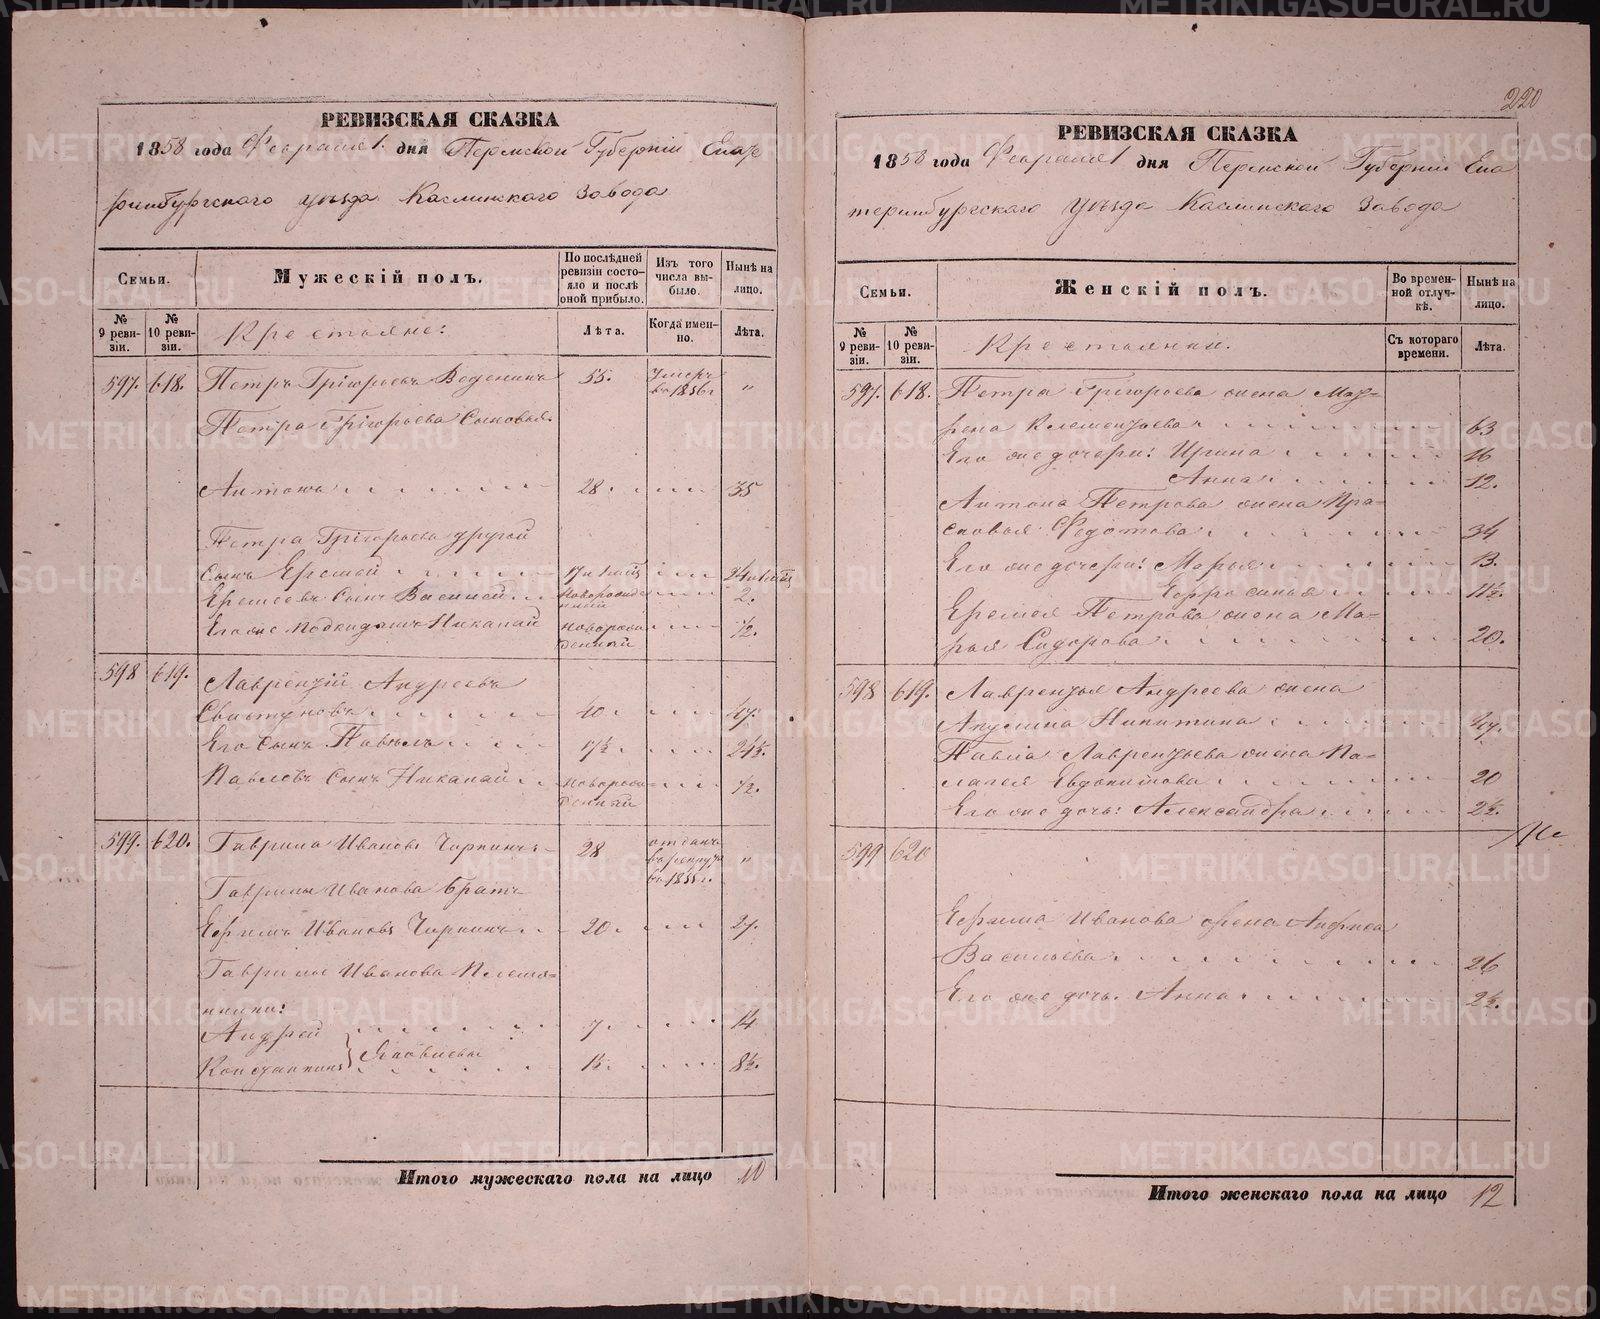 РЕВИЗСКАЯ СКАЗКА
1858 года Февраля 1 дня Пермской Губернiи Екате
ринбургскаго уѣзда Каслинскаго Завода
Семьи.
Мужескiй полъ.
По послѣдней ревизiи состояло и послѣ оной прибыло.
Изъ того числа выбыло.
Нынѣ на лицо.
№ 9 ревизiи.
№ 10 ревизiи.
Крестьяне:
Лѣта.
Когда именно.
Лѣта.
597. 618. Петръ Григорьевъ 55. Умеръ въ 1856 г. "
Петра Григорьева Сыновья
Антонъ 28. 35
Петра Григорьева другой
сынъ Еремей 24
Еремеевъ сынъ Василiй Новорожденный 2.
Его же Подкидышъ Николай Новорожденный ½.
598 619. Лаврентiй Андреевъ
Свистуновъ 40 47.
Его сынъ Павелъ 17½ 24½.
Павловъ сынъ Николай Новорожденный ½.
599. 620. Гаврила Ивановъ Чирпинъ 28 отданъ в рекруты въ 1855 г. "
Гаврилы Иванова братъ
Ефимъ Ивановъ Чирпинъ 20. 27.
Гаврилы Иванова Племян-
ники:
Андрей 7. 14
Константинъ } Яковлевы 1½. 8½.
Итого мужескаго пола на лицо 10
220
РЕВИЗСКАЯ СКАЗКА
1858 года Февраля 1 дня Пермской Губернiи Ека
теринбургскаго уѣзда Каслинскаго Завода
Семьи.
Женскiй полъ.
Во временной отлучкѣ.
Нынѣ на лицо.
№ 9 ревизiи.
№ 10 ревизiи.
Крестьянки.
Съ котораго времени.
Лѣта.
597. 618. Петра Григорьева жена Мав-
рена Клементьева 63
Его же дочери: Ирина 16
Анна 12.
Антона Петрова жена Пра-
сковья Федотова 34
Его же дочери: Марья 13.
Ефросинья 11½.
Еремея Петрова жена Ма-
рья Сидорова 20.
598 619. Лаврентья Андреева жена
Акулина Никитина 47.
Павла Лаврентьева жена Па-
лагея Евдокимова 20
Его же дочь: Александра 2½.
599 620
Ефима Иванова жена Анфиса
Васильева 26
Его же дочь. Анна 2½.
Итого женскаго пола на лицо 12
METRIKI.GASO-URAL.RU